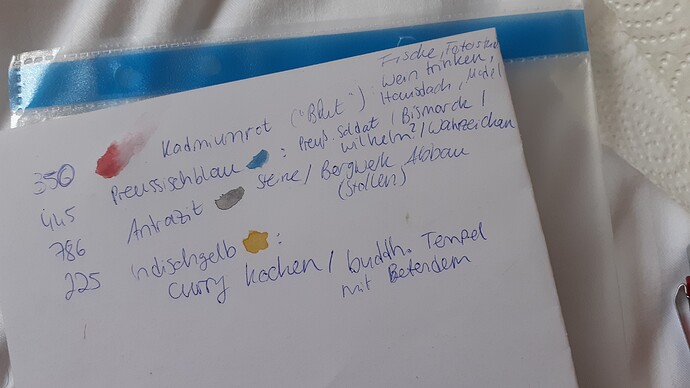 350 Kadmiumrot ("Blut"): Fische, Fotos
Wein trinken,
Hausdach,
445 Preussischblau : Preuß. Soldat / Bismarck /
Wilhelm? / Wahrzeichen
786 Antrazit Steine / Bergwerk Abbau
(Stollen)
225 Indischgelb :
Curry kochen / buddh. Tempel
mit Betendem